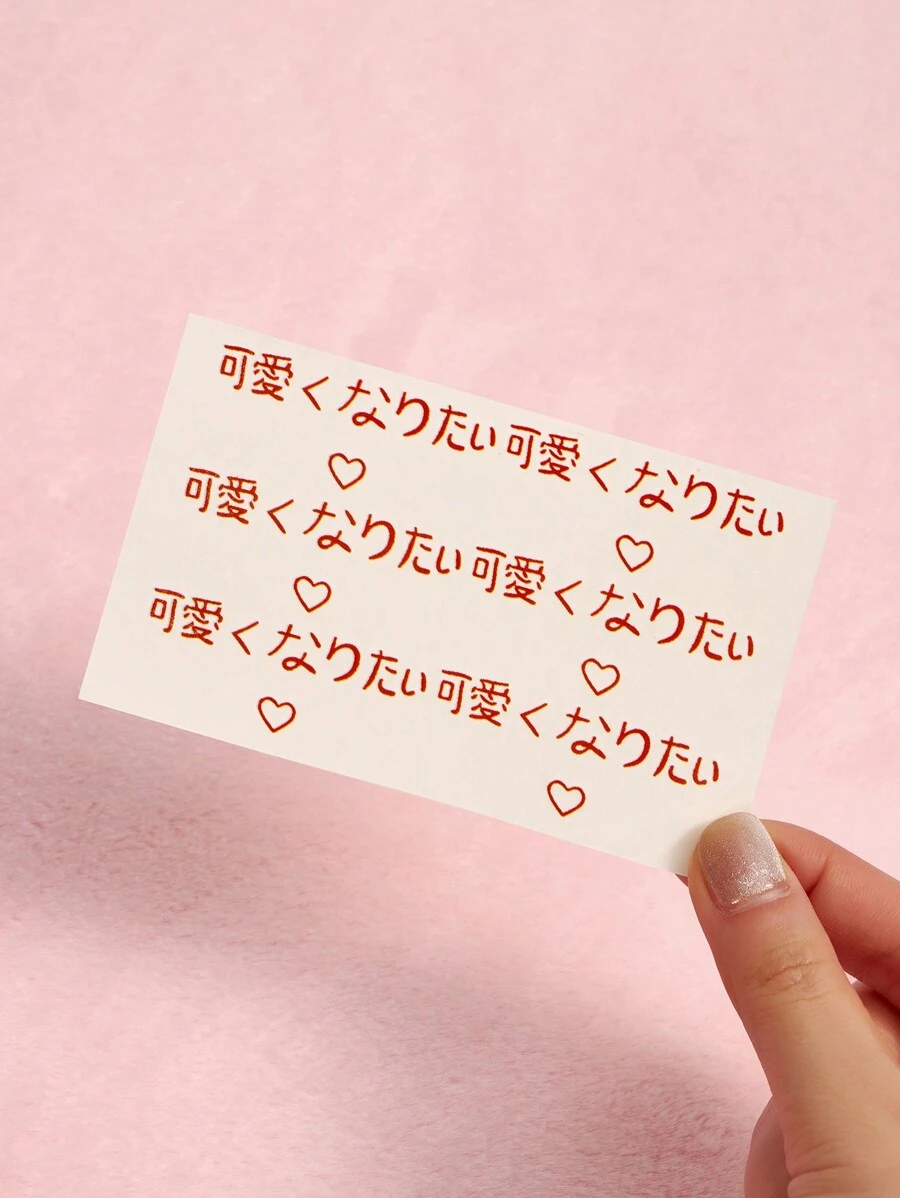 可愛くなりたい 可愛くなりたい
♡ ♡
可愛くなりたい 可愛くなりたい
♡ ♡
可愛くなりたい 可愛くなりたい
♡ ♡